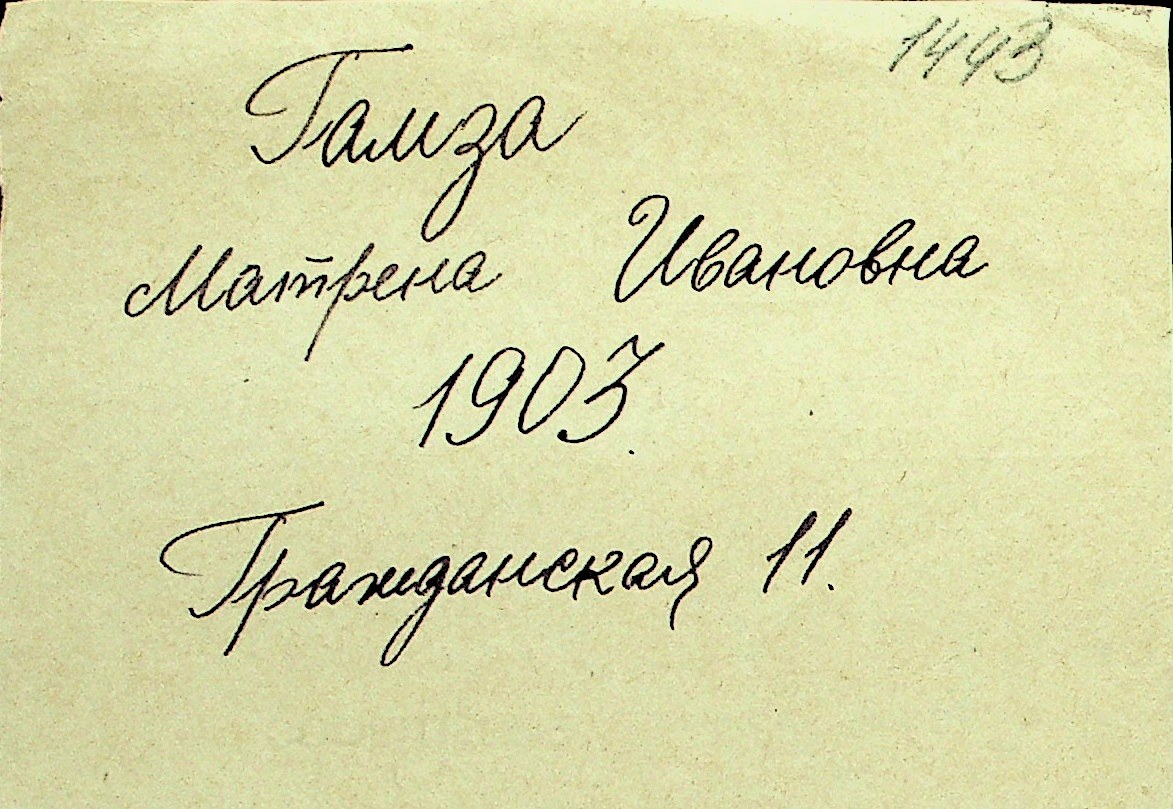 1443
Гамза
Матрена Ивановна
1903.
Гражданская 11.